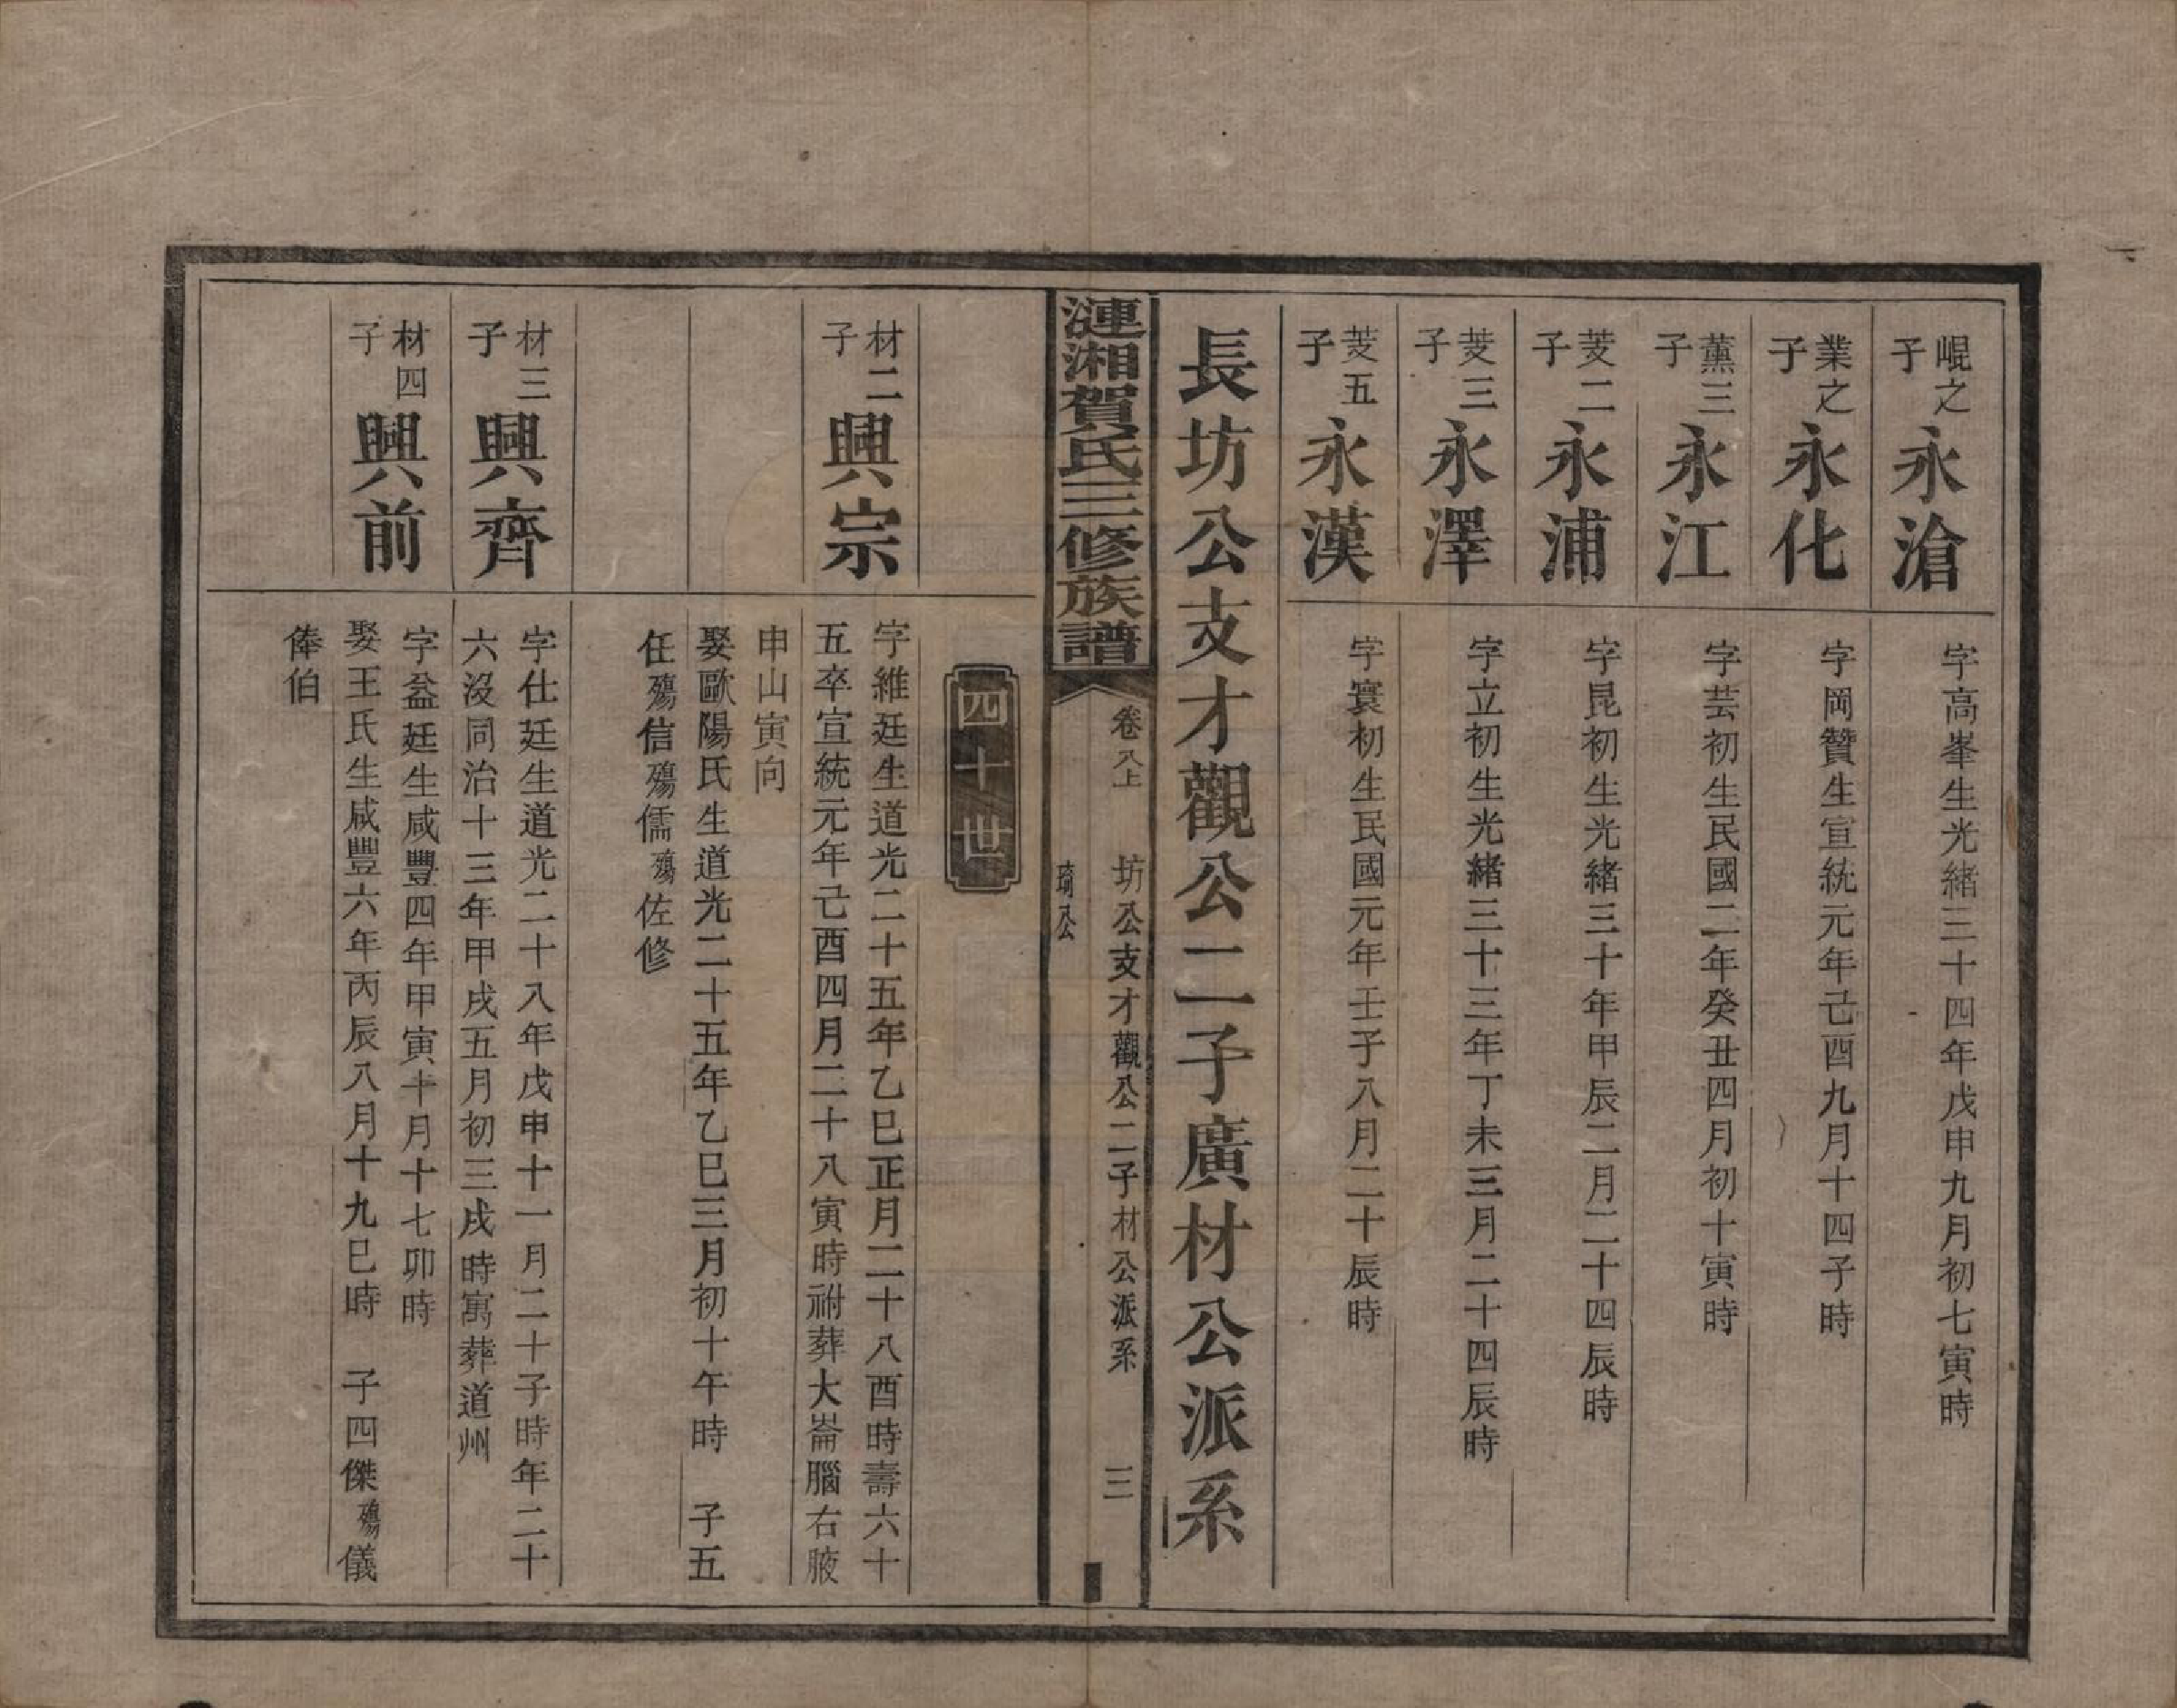 崐之子 永滄 字高峯生光緒三十四年戊申九月初七寅時
業之子 永化 字岡贊生宣統元年己酉九月十四子時
薰三子 永江 字芸初生民國二年癸丑四月初十寅時
茭二子 永浦 字昆初生光緒三十年甲辰二月二十四辰時
茭三子 永澤 字立初生光緒三十三年丁未三月二十四辰時
茭五子 永漢 字寰初生民國元年壬子八月二十辰時
長坊公支才觀公二子廣材公派系
漣湘賀氏三修族譜 卷八上 坊公支才觀公二子材公派系 三
琦公
四十世
材二子 興宗 字維廷生道光二十五年乙巳正月二十八酉時壽六十
五卒宣統元年己酉四月二十八寅時祔葬大崙腦右腋
申山寅向
娶歐陽氏生道光二十五年乙巳三月初十午時 子五
任殤信殤儒殤佐修
材三子 興齊 字仕廷生道光二十八年戊申十一月二十子時年二十
六沒同治十三年甲戌五月初三戌時寓葬道州
材四子 興前 字益廷生咸豐四年甲寅十月十七卯時
娶王氏生咸豐六年丙辰八月十九巳時 子四傑殤儀
俸伯